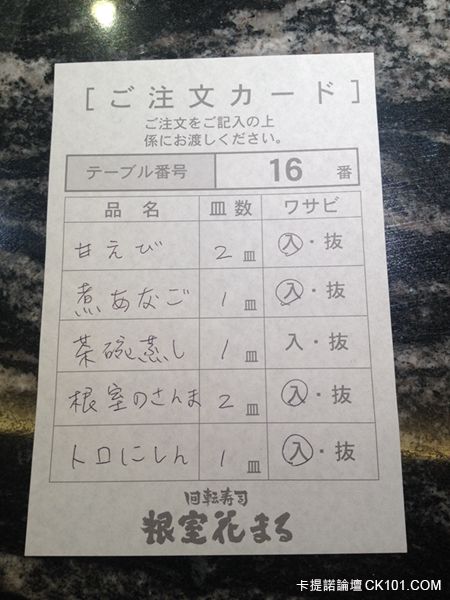 [ご注文カード]
ご注文をご記入の上
係にお渡しください。
テーブル番号 16 番
品名 皿数 ワサビ
甘えび 2皿 入・抜
煮あなご 1皿 入・抜
茶碗蒸し 1皿 入・抜
根室のさんま 2皿 入・抜
トロにしん 1皿 入・抜
回転寿司
根室花まる
卡提諾論壇 CK101.COM